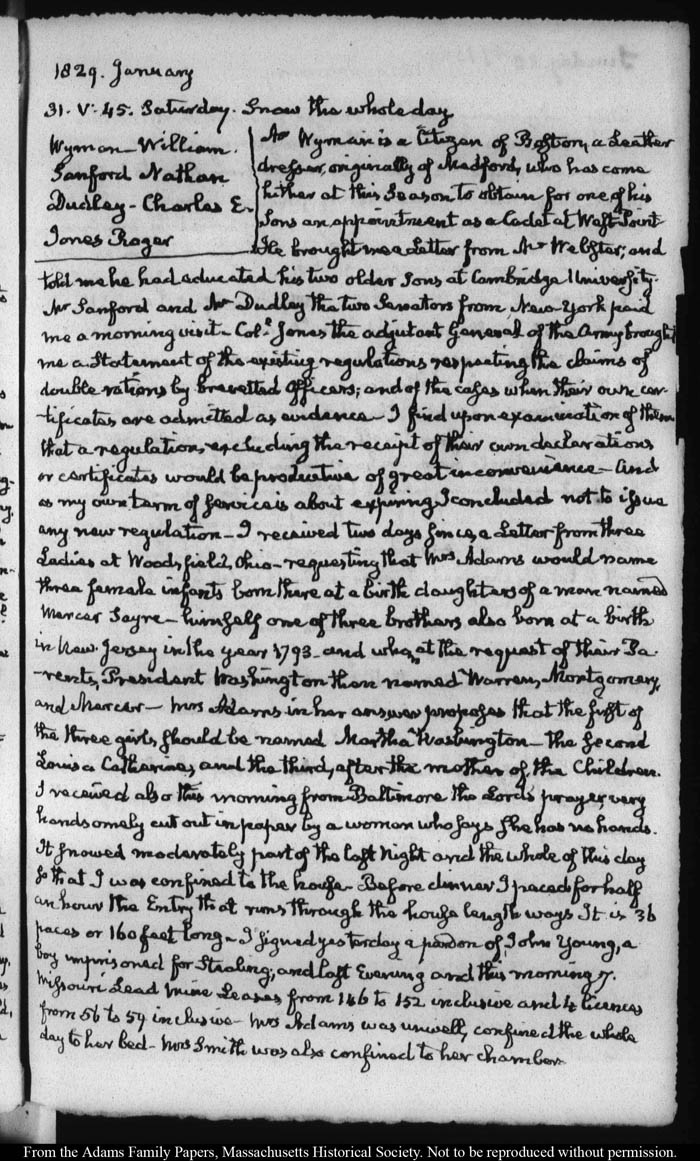 1829. January
31. V: 45. Saturday. Snow the whole day
Wyman - William.
Sanford Nathan
Dudley - Charles E.
Jones Roger
Mr Wyman is a Citizen of Boston, a Leather
dresser, originally of Medford, who has come
hither at this Season to obtain for one of his
Sons an appointment as a Cadet at West-Point
He brought me a Letter from Mr Webster; and
told me he had educated his two older Sons at Cambridge University.
Mr Sanford and Mr Dudley the two Senators from New-York paid
me a morning visit - Coll. Jones the adjutant General of the Army brought
me a Statement of the existing regulations respecting the claims of
double rations by brevetted Officers; and of the cases when their own cer-
-tificates are admitted as evidence - I find upon examination of them
that a regulation, excluding the receipt of their own declarations
or certificates would be productive of great inconvenience - And
as my own term of service is about expiring I concluded not to issue
any new regulation - I received two days since, a Letter from three
Ladies at Woodsfield, Ohio - requesting that Mrs Adams would name
three female infants born there at a birth daughters of a man named
Mercer Sayre - himself one of three brothers also born at a birth
in New Jersey in the year 1793 - and who, at the request of their Pa-
-rents, President Washington then named Warren, Montgomery,
and Mercer - Mrs Adams in her answer proposes that the first of
the three girls, should be named Martha Washington - the second
Louisa Catharine, and the third, after the mother of the Children.
I received also this morning from Baltimore the Lord's prayer, very
handsomely cut out in paper by a woman who says she has no hands.
It snowed moderately part of the last Night and the whole of this day
so that I was confined to the house - Before dinner I paced for half
an hour the Entry that runs through the house length ways It is 36
paces or 160 feet long - I signed yesterday a pardon of John Young, a
boy imprisoned for Stealing; and last Evening and this morning 7.
Missouri Lead mine Leases from 146 to 152 inclusive and 4 licences
from 56 to 59 inclusive - Mrs Adams was unwell, confined the whole
day to her bed - Mrs Smith was also confined to her chamber
From the Adams Family Papers, Massachusetts Historical Society. Not to be reproduced without permission.